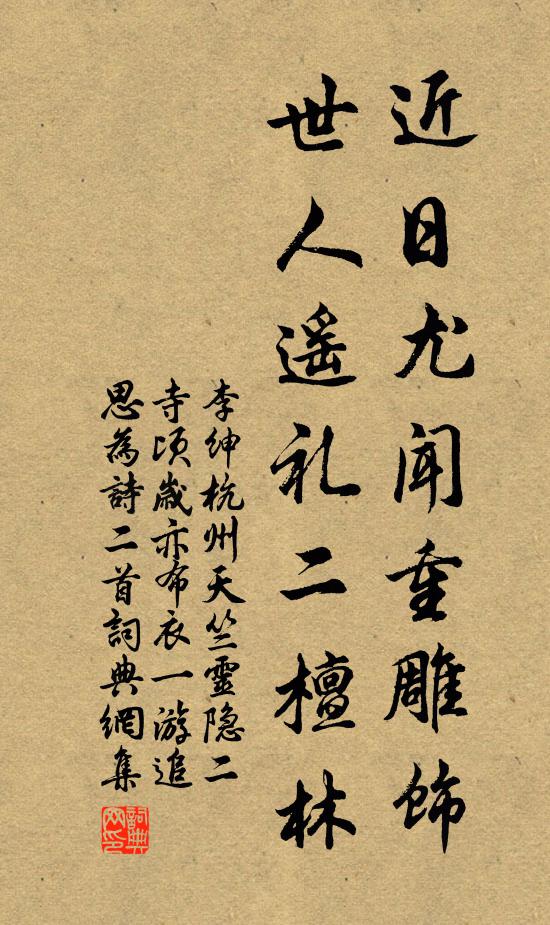 近日尤闻重雕饰
世人遥礼二檀林
李绅杭州天竺靈隐二
寺顷歲亦布衣一游追
思為詩二首詞典網集
詞典网印